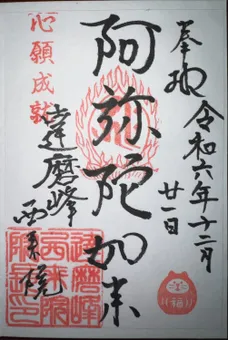 奉拝
令和六年十二月
廿一日
阿弥陀如来
心願成就
達磨峰
西来院
福